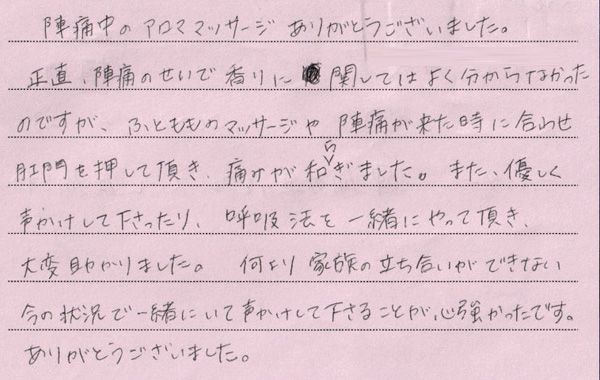 陣痛中のアロママッサージ ありがとうございました。
正直、陣痛のせいで香りに関してはよく分からなかった
のですが、ふともものマッサージや 陣痛が来た時に合わせ
肛門を押して頂き、痛みが和らぎました。また、優しく
声かけして下さったり、呼吸法を一緒にやって頂き、
大変助かりました。 何より 家族の立ち合いができない
今の状況で一緒にいて声かけして下さることが、心強かったです。
ありがとうございました。